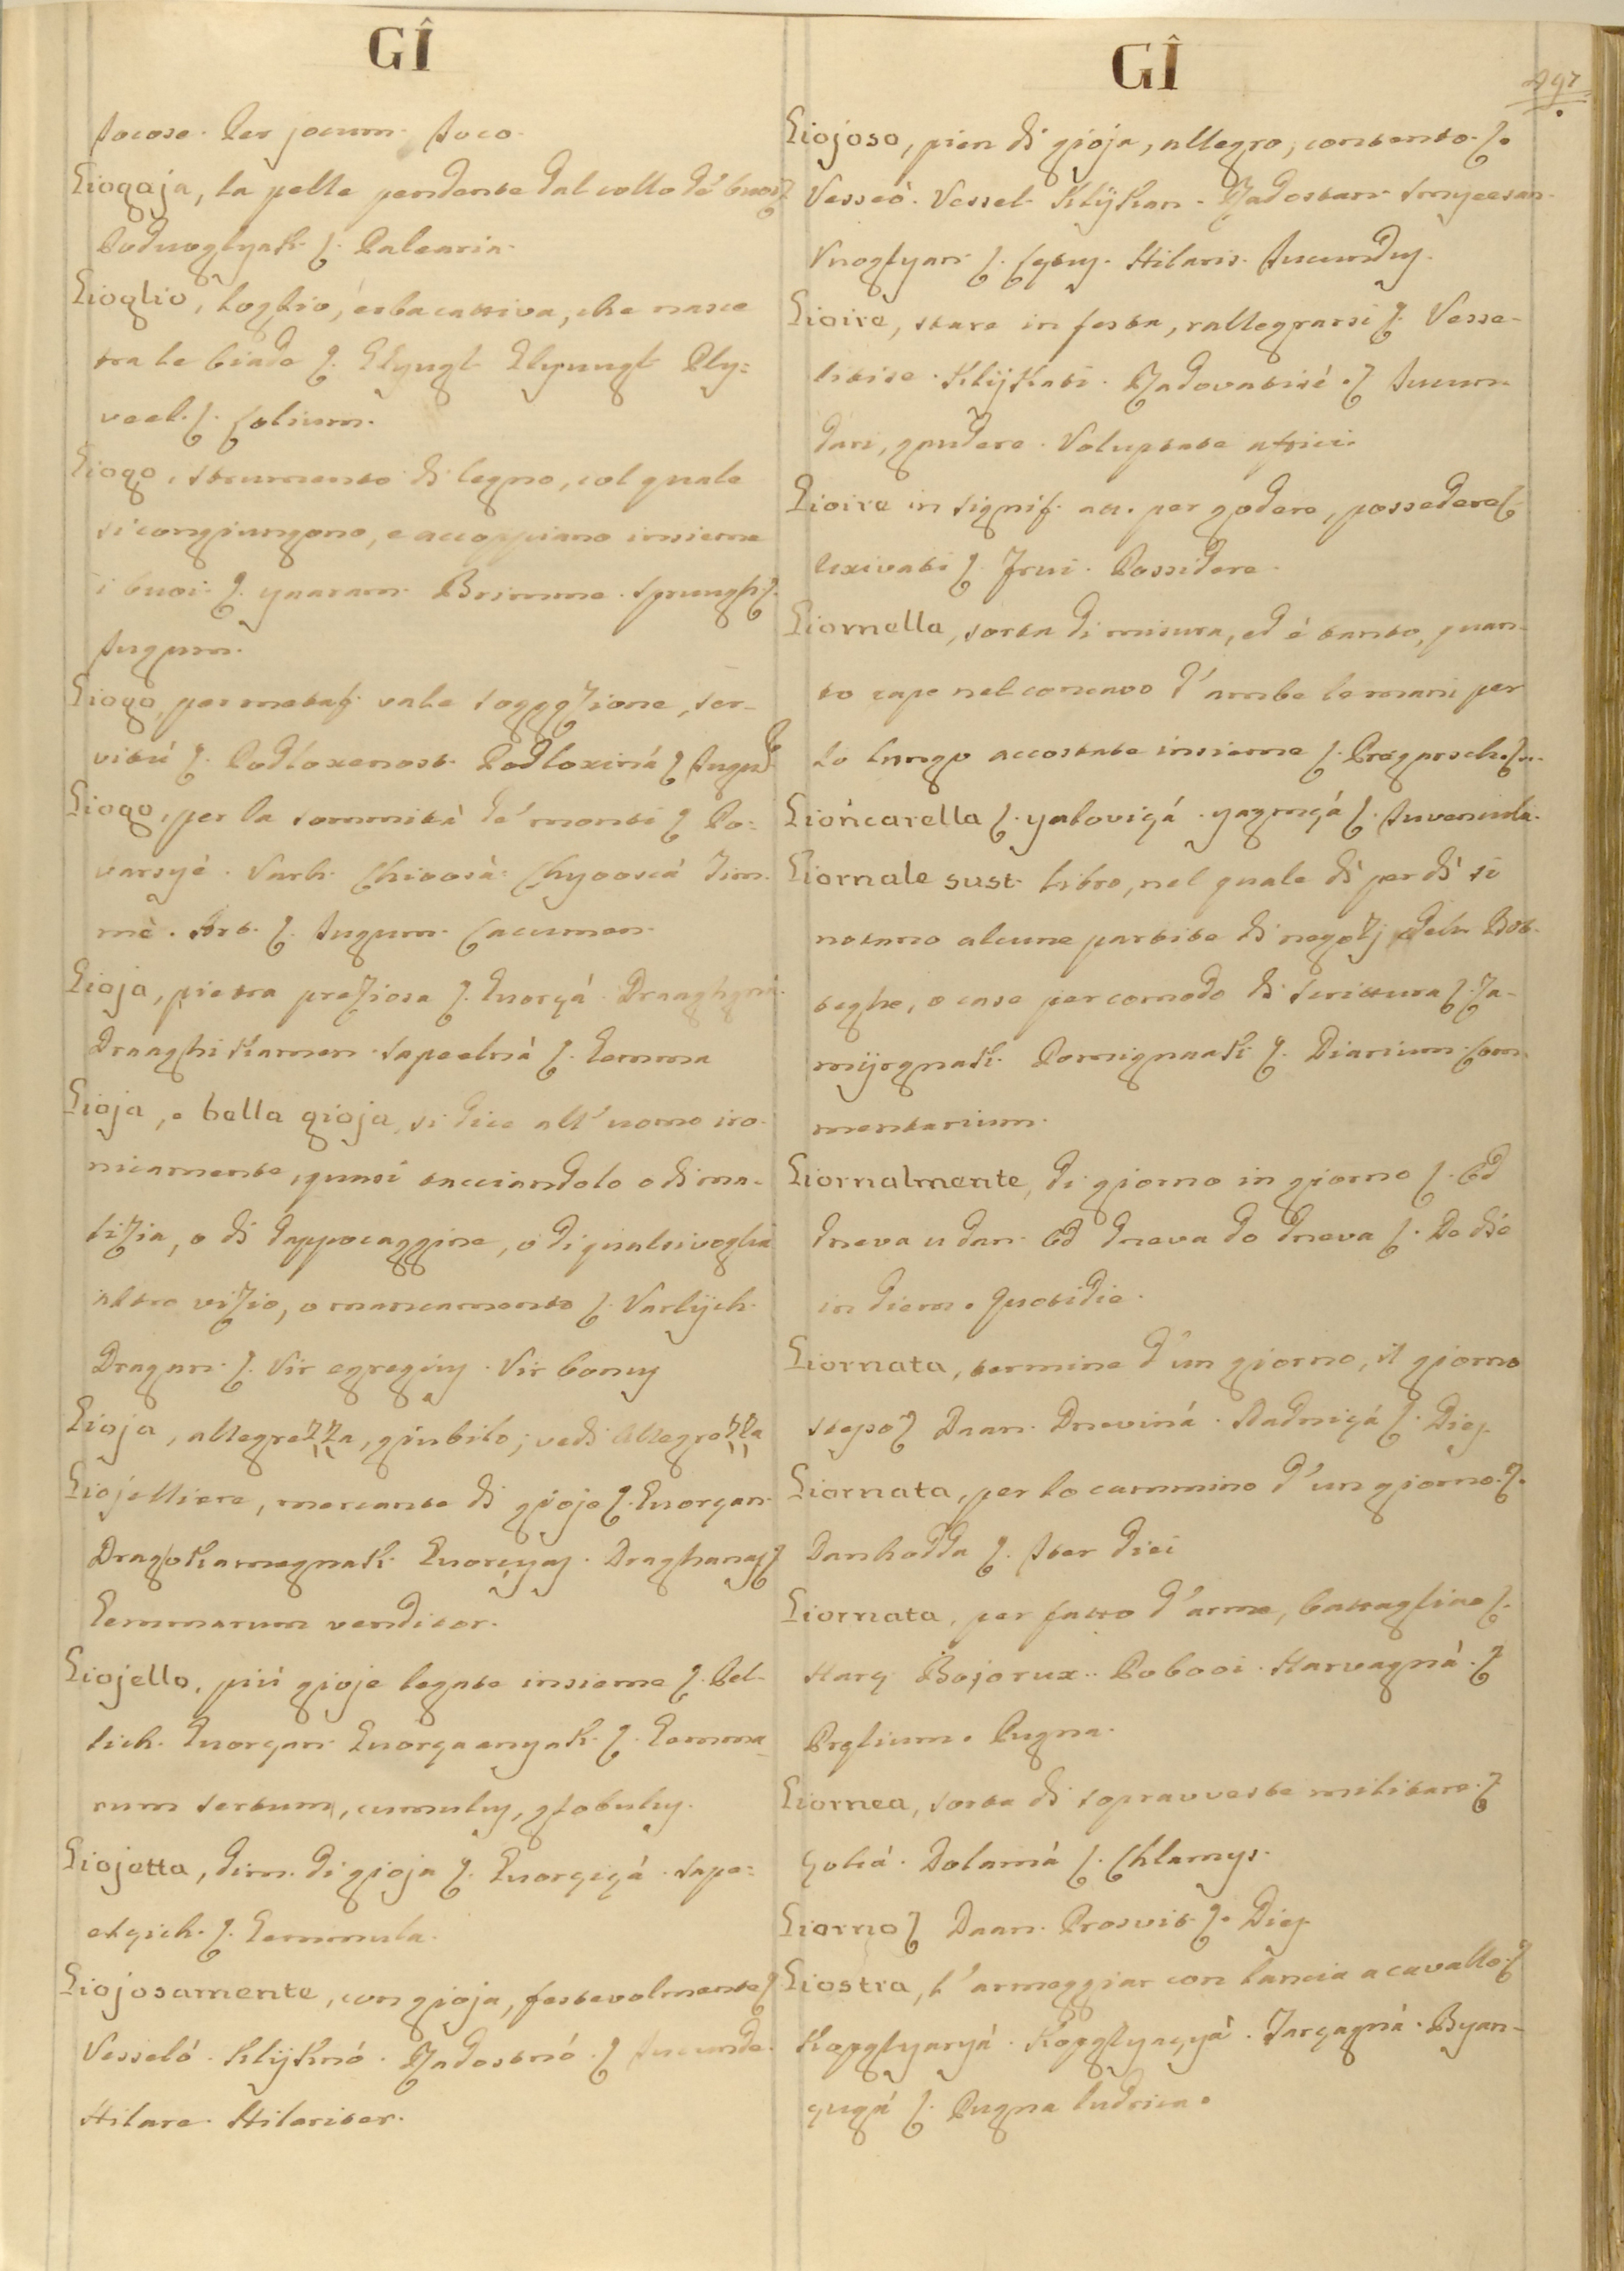 GÎ
Jocose. Per jocum. Joco.
Giogaja, la pelle pendente dal collo de' buoi
Poduoglyak. Palearia.
Gioglio, loglio, erba cattiva, che nasce
tra le biade. Glyugl. Glyungl. Ply=
veel. Lolium.
Giogo, strumento di legno, col quale
si congiungono, e accoppiano insieme
i buoi. yaaram. Brimme. Sprungh.
Jugum.
Giogo, per metaf. vale soggezione, ser-
vitú. Podloxenost. Podloxiná.
Giogo, per la sommità de' monti. Po=
varsyé. Varh. Chioosà. Chyooscá Tim.
mè. Art. Jugum. Cacumen.
Gioja, pietra preziosa. Guorçá. Draaghgná.
Draaghi Kamen. Sapeelná. Gemma
Gioja, o bella gioja, si dice all' uomo iro-
nicamente, quasi tacciandolo o di ma-
lizia, o di dappocaggine, o di qualsivoglia
altro vizio, o mancamento. Varlijch.
Dragan. Vir egregius. Vir bonus
Gioja, allegrezza, giubilo; vedi Allegrezza
Giojelliere, mercante di gioje. Guorçar.
DragoKamegnaK. Guorçyas. Draghanas
Gemmarum venditor.
Giojello, più gioje legate insieme. Pet-
lich. Guorçan. GuorçaanyaK. Gemma-
rum sertum, cumulus, globulus.
Giojetta, dim. di gioja. Guorçiçá. Sape=
elçich. Gemmula.
Giojosamente, con gioja, festevolmente
Vesseló. Klijknó. Radostnó. Jucunde.
Hilare. Hilariter.
GÎ
297
Giojoso, pien di gioja, allegro, contento.
Vesseò. Vessel. Klijkan. Radostan. Smyeesan.
Vuoglyan. Lętus. Hilaris. Jucundus.
Gioire, stare in festa, rallegrarsi. Vesse-
litise. Klijkati. Radovatisé. Jucun-
dari, gaudere. Voluptate affici.
Gioire in signif. att. per godere, possedere
Uxivati. Frui. Possidere.
Giornella, sorta di misura, ed è tanto, quan-
to cape nel concavo d' ambe le mani per
lo lungo accostate insieme. Pregarsch.
Giòncarella. yaloviçá. yagmçá. Juvencula.
Giornale sust. libro, nel quale dì per dì si
notano alcune partite di negozj delle Bot-
teghe, o case per comodo di scrittura. Za-
mijrgnaK. PomignaaK. Diarium. Com-
mentarium.
Giornalmente, di giorno in giorno. Od
dneva u dan. Od dneva do dneva. De die
in diem. Quotidie.
Giornata, termine d' un giorno, il giorno
stesso. Daan. Dneviná. Nadniçá. Dies.
Giornata, per lo cammino d' un giorno.
Danhodda. Iter diei
Giornata, per fatto d' arme, battagliae.
Harç. Bojorux. Pobooi. Harvagná.
Pręlium. Pugna.
Giornea, sorta di sopravveste militare.
çohá. Dolamá. Chlamys.
Giorno. Daan. Prosvit. Dies.
Giostra, l' armeggiar con lancia a cavallo.
Kopglyaryá. Kopglyaçyá. Tarçagná. Byan-
çugá. Pugna ludrica.